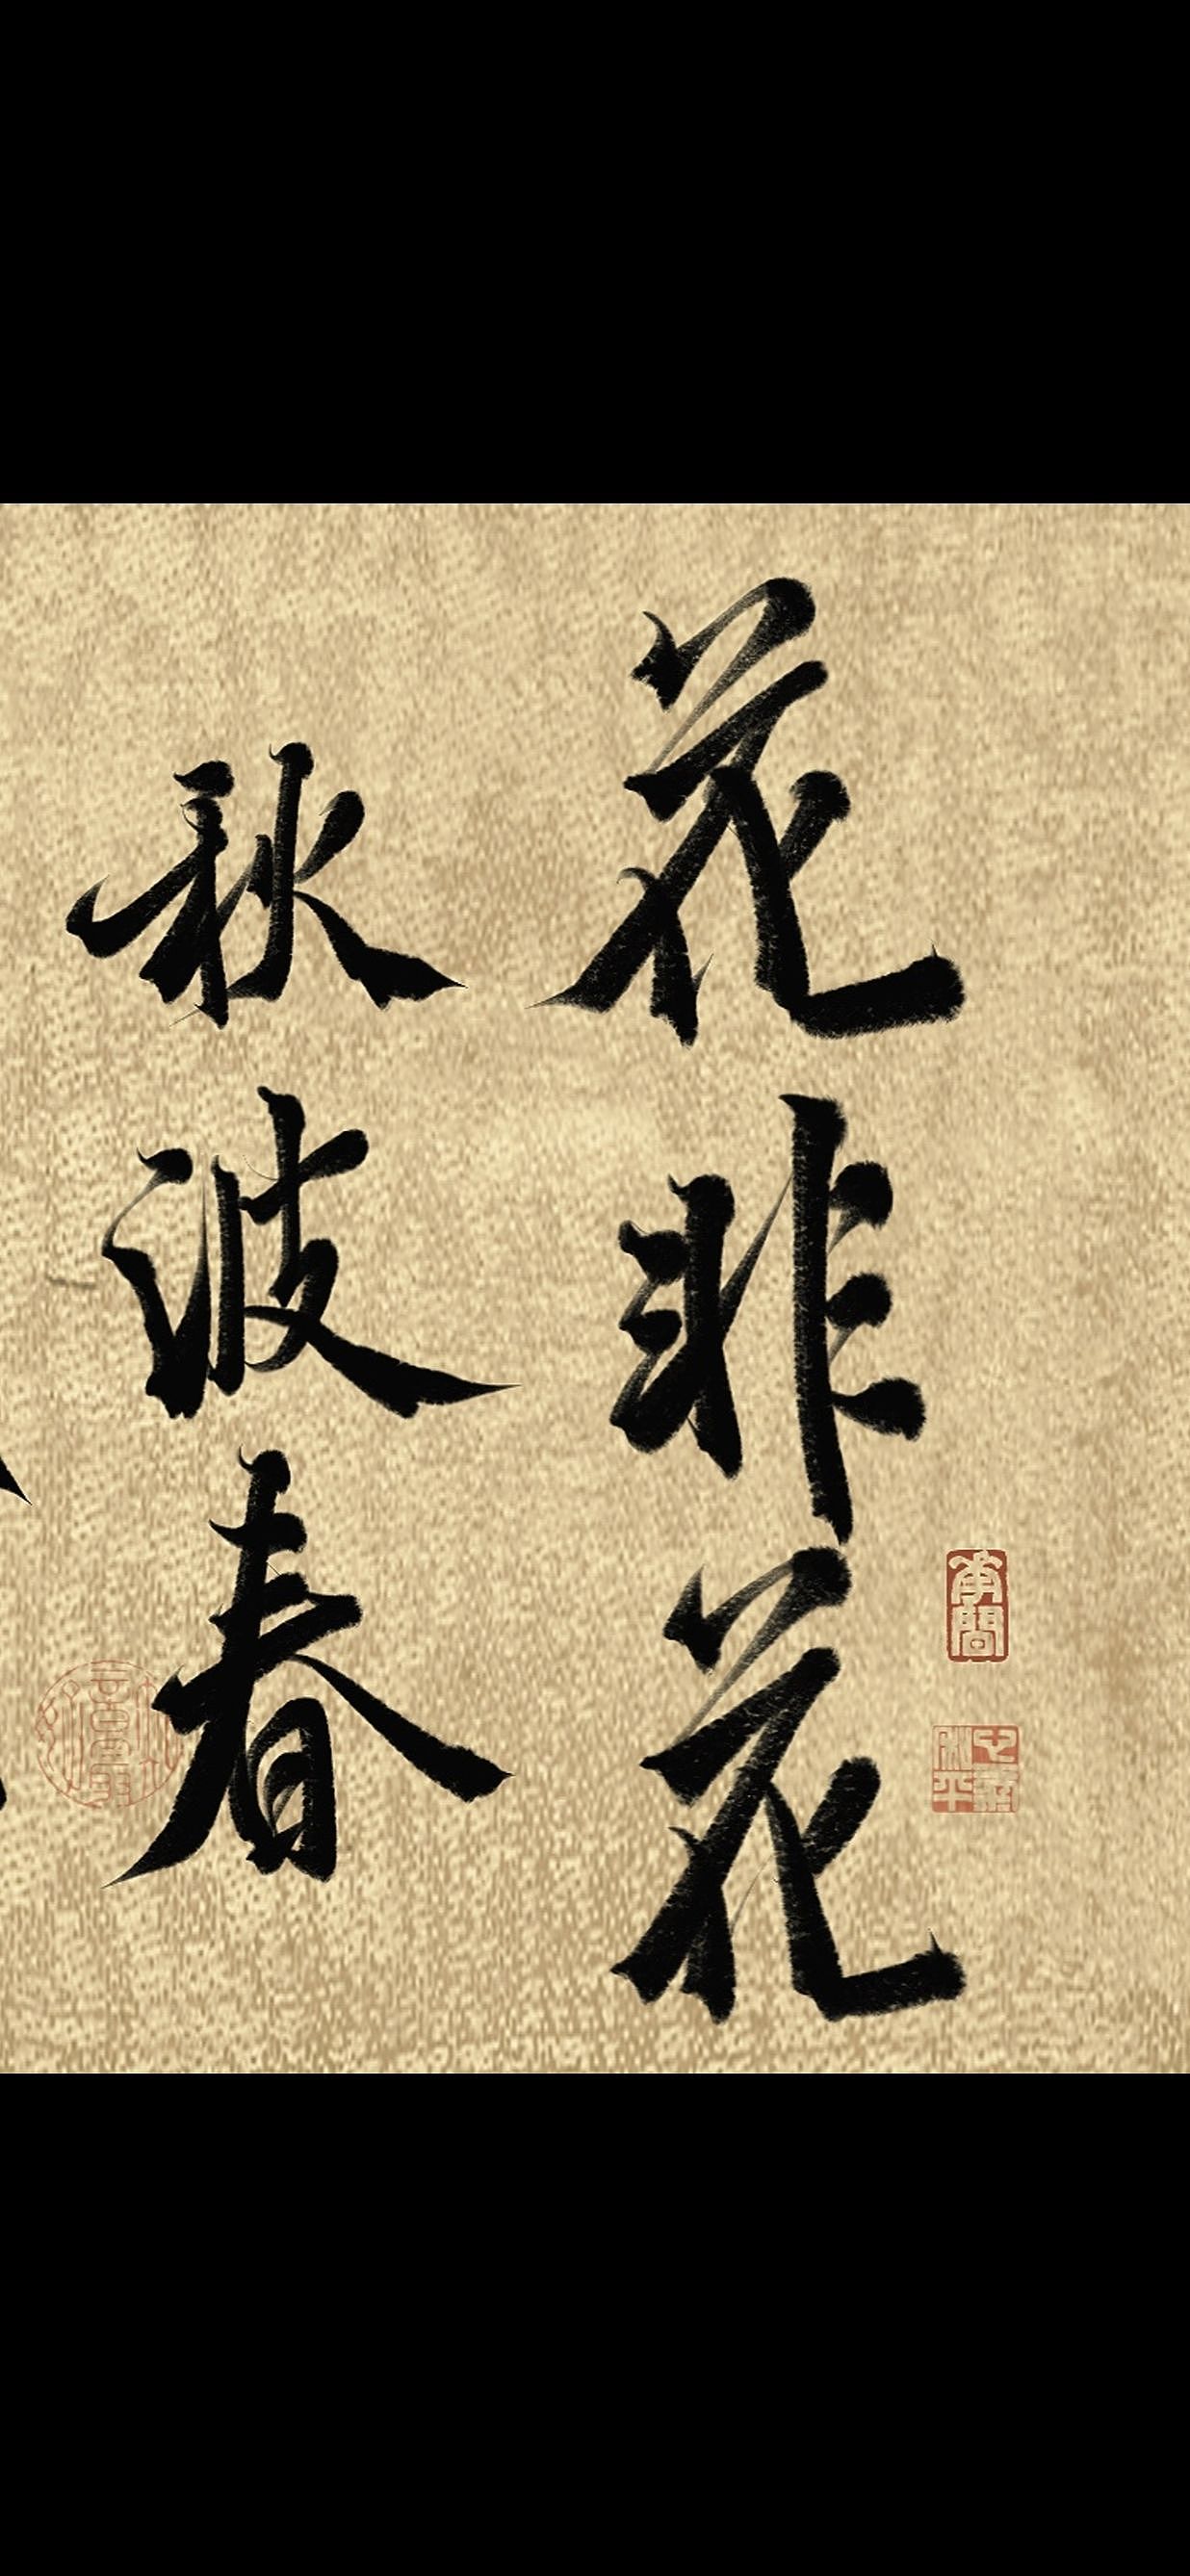 花非花
秋波春